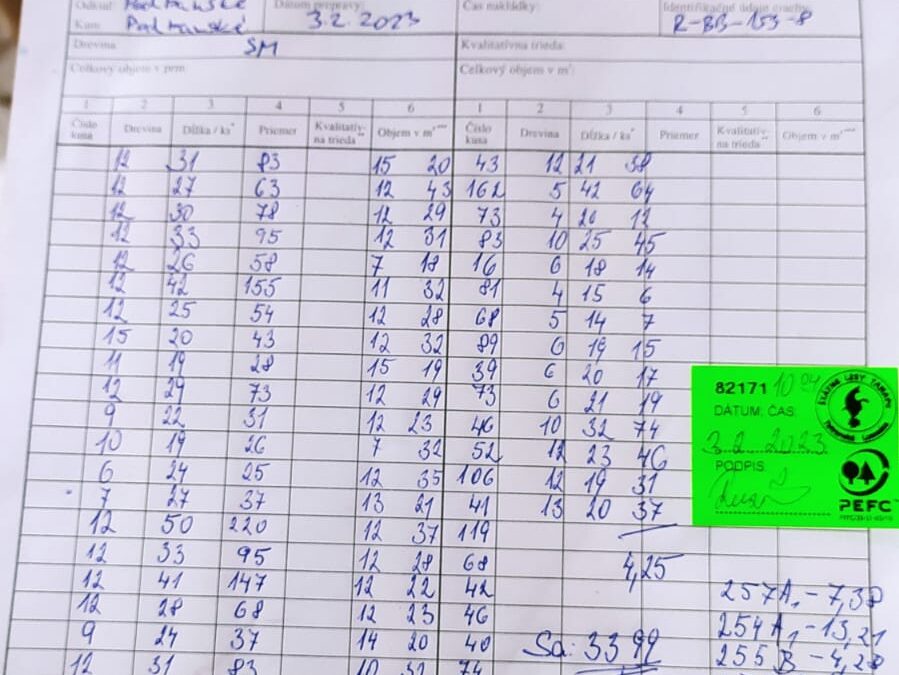 Odkiaľ: Podtanské Dátum prepravy: 3.2.2023 Čas nakládky: Identifikačné údaje značky:
Kam: Podtanské R-BB-153-8
Drevina: SM Kvalitatívna trieda:
Celkový objem v prm: Celkový objem v m³:
1 2 3 4 5 6 1 2 3 4 5 6
Číslo kusa Drevina Dĺžka / ks* Priemer Kvalitatív- na trieda** Objem v m³*** Číslo kusa Drevina Dĺžka / ks* Priemer Kvalitatív- na trieda** Objem v m³***
12 31 83 15 20 43 12 21 38
12 27 63 12 43 162 5 42 64
12 30 78 12 29 73 4 20 12
12 33 95 12 31 83 10 25 45
12 26 58 7 18 16 6 18 14
12 42 155 11 32 81 4 15 6
12 25 54 12 28 68 5 14 7
15 20 43 12 32 89 6 19 15
11 19 28 15 19 39 6 20 17
12 29 73 12 29 73 6 21 19
9 22 31 12 23 46 10 32 74
10 19 26 7 32 52 12 23 46
6 24 25 12 35 106 12 19 31
7 27 37 13 21 41 13 20 37
12 50 220 12 37 119
12 33 95 12 28 68 4,25
12 41 147 12 22 42 257A1 - 7,38
12 28 68 12 23 46 254A1 - 13,21
9 24 37 14 20 40 Sa: 33 99 255 B - 4,28
12 31 83 10 32 74
82171 10
ŠTÁTNE LESY TANAPU
DÁTUM, ČAS:
3.2.2023
PODPIS:
PEFC